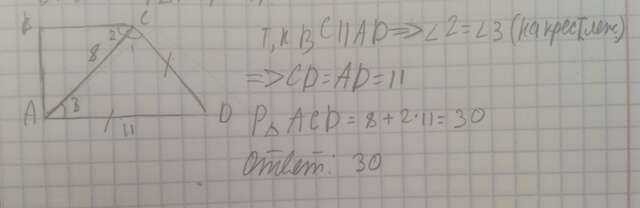 B C
2
1
8
A 3 11 D
Т,К BC || AD => ∠2=∠3 (накрест леж)
=> CD=AD=11
P△ ACD = 8 + 2·11 = 30
Ответ: 30